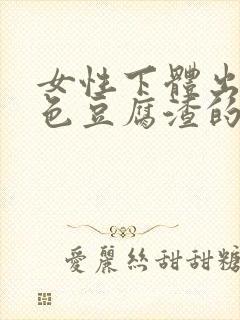 女性下體出
色豆腐渣的
愛麗絲甜甜糖